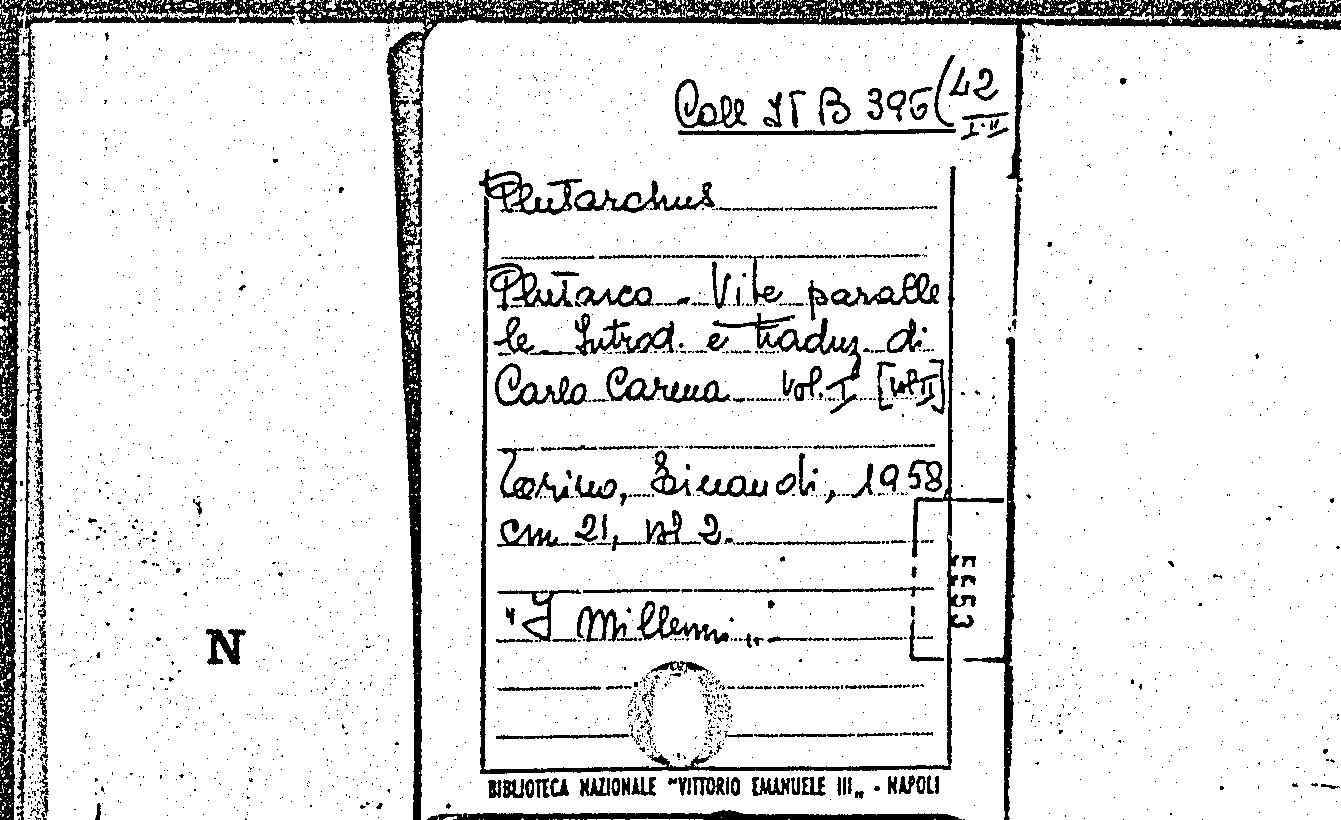 Coll. IT B 395 (42
I-II
Plutarchus
Plutarco - Vite paralle
le Introd. e traduz. di
Carlo Carena vol. I [vol II]
Torino, Einaudi, 1958
cm 21, vol 2.
"I Millenni"
5553
N
BIBLIOTECA NAZIONALE "VITTORIO EMANUELE III" - NAPOLI